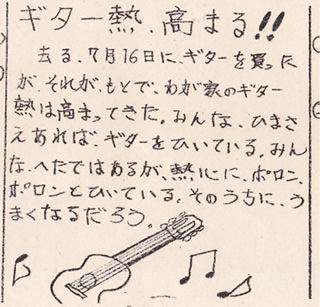 ギター熱、高まる!!
去る、7月16日に、ギターを買った
が、それが、もとで、わが家のギター
熱は高まってきた。みんな、ひまさ
えあれば、ギターをひいている。みん
な、へたではあるが、熱心に、ポロン、
ポロンとひいている。そのうちに、う
まくなるだろう。